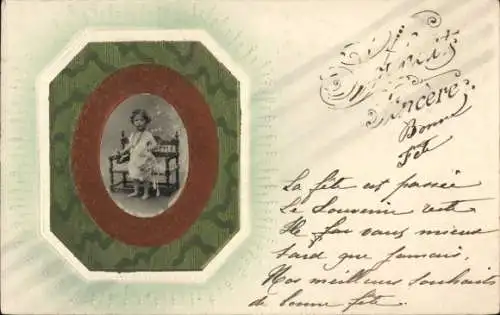 Amitié
Sincère
Bonne
Fête
La fête est passée
Le Souvenir reste
Il fau vaus mieux
tard que jamais,
Nos meilleurs souhaits
de bonne fête.